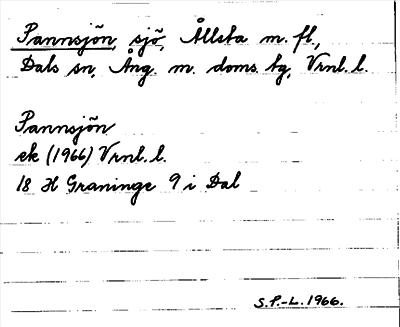 Pannsjön, sjö, Ållsta m. fl.,
Dals sn, Ång. m. doms. tg, Vrnl. l.
Pannsjön
ek (1966) Vrnl. l.
18 H Graninge 9 i Dal
S.P.-L. 1966.